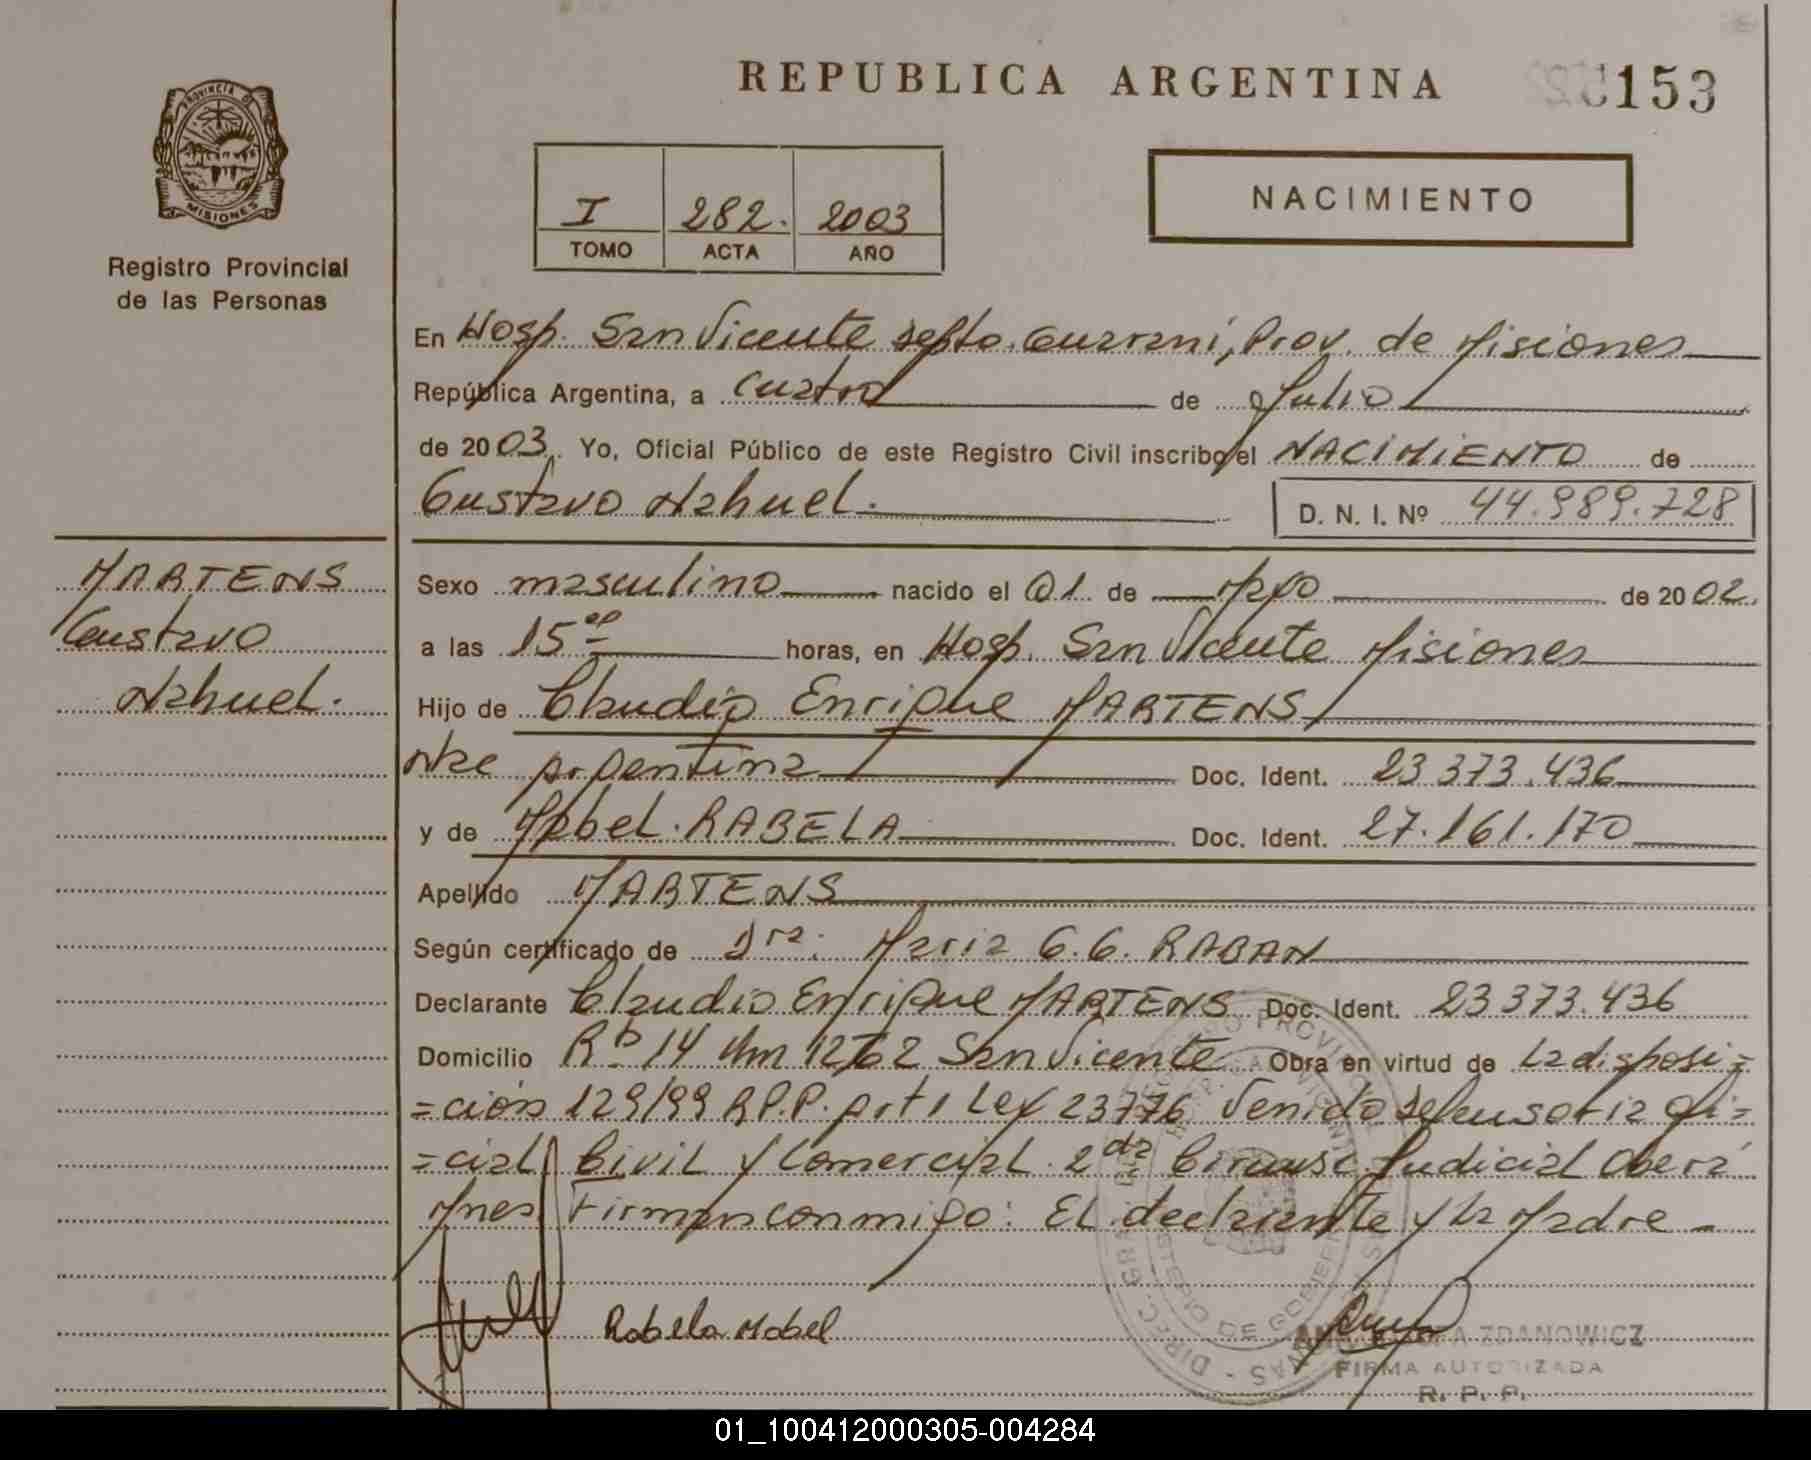 REPUBLICA ARGENTINA
153
PROVINCIA DE
MISIONES
Registro Provincial
de las Personas
I 282. 2003
TOMO ACTA AÑO
NACIMIENTO
En Hosp. San Vicente depto. Guarani, Prov. de Misiones
República Argentina, a cuatro de Julio
de 2003. Yo, Oficial Público de este Registro Civil inscribo el NACIMIENTO de
Gustavo Nahuel.
D. N. I. Nº 44.989.728
MARTENS
Gustavo
Nahuel.
Sexo masculino nacido el 01. de Mayo de 2002.
a las 15 horas, en Hosp. San Vicente Misiones
Hijo de Claudio Enrique MARTENS
Nac argentina Doc. Ident. 23 373.436
y de Mabel. RABELA Doc. Ident. 27.161.170
Apellido MARTENS
Según certificado de Dra. Maria G.G. RABAN
Declarante Claudio Enrique MARTENS Doc. Ident. 23 373.436
Domicilio 14 Km 1262 San Vicente Obra en virtud de La disposi=
=ción 129/99 R.P.P. art 1 Ley 23776 Venido defensoria ofi=
=cial Civil y Comercial. 2da Circunsc. Judicial Oberá
Mnes Firman conmigo: El declarante y la Madre -
Rabela Mabel
ZDANOWICZ
FIRMA AUTORIZADA
R. P. P.
01_100412000305-004284